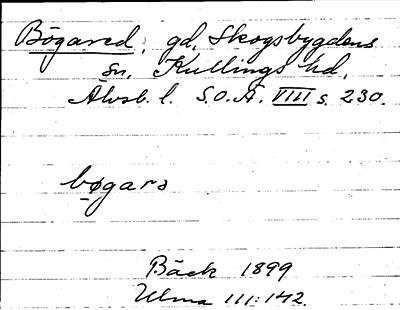 Bögared, gd, Skogsbygdens
sn, Kullings hd,
Älvsb. l. S.O.Ä. VIII s. 230.
bøgarə
Bäck 1899
Ulma 111:142.